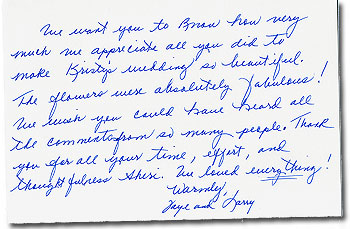 We want you to know how very
much we appreciate all you did to
make Kristy's wedding so beautiful.
The flowers were absolutely fabulous!
We wish you could have heard all
the comments from so many people. Thank
you for all your time, effort, and
thoughtfulness Sheri. We loved everything!
Warmly,
Faye and Larry